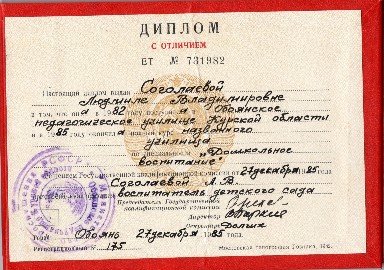 ДИПЛОМ
С ОТЛИЧИЕМ
ЕТ № 731982
Настоящий диплом выдан Соголаевой
Людмиле Владимировне
в том, что он а в 1982 году поступил а в Обоянское
педагогическое училище Курской области
и в 1985 году окончил а полный курс названного
училища
по специальности „Дошкольное
воспитание“
Решением Государственной квалификационной комиссии от 27 декабря 1985 года
Соголаевой Л.В.
воспитатель детского сада
Председатель Государственной
квалификационной комиссии
Директор
Секретарь
Город Обоянь 27 декабря 1985 года
Регистрационный № 175
Московская типография Гознака, 198